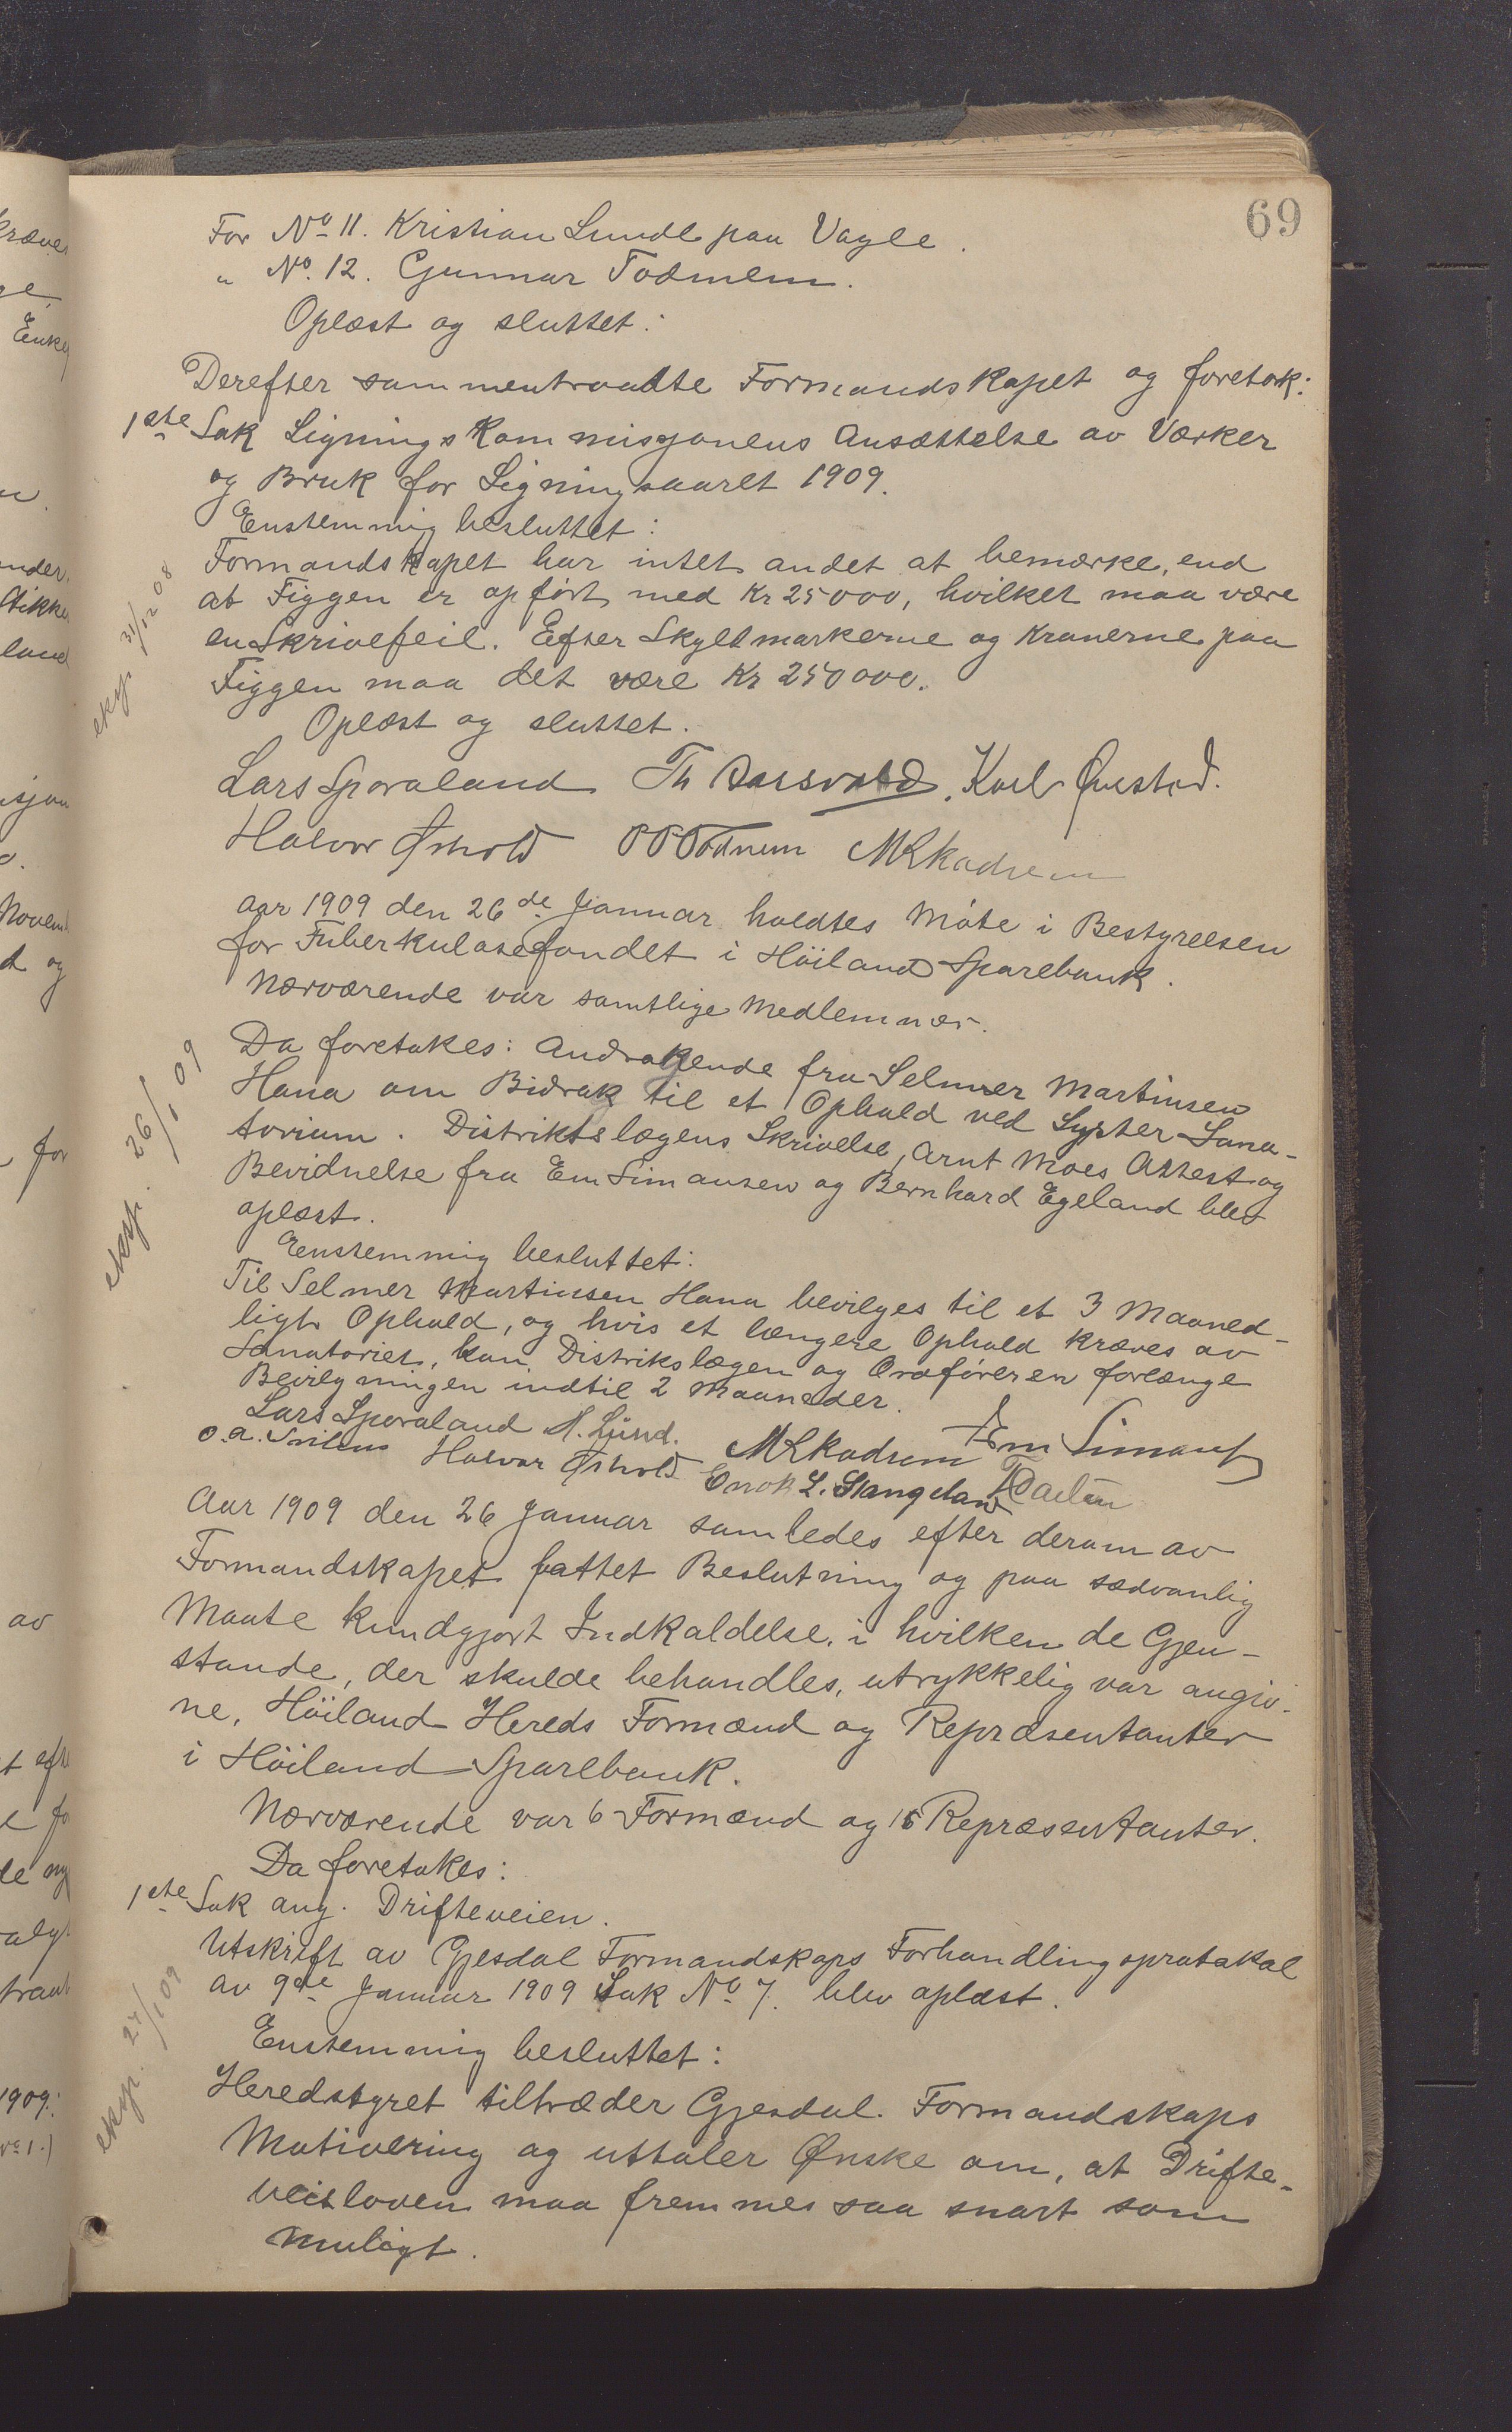 69
For No 11. Kristian Lunde paa Vagle.
" No. 12. Gunnar Todneim.
Oplæst og sluttet:
Derefter sammentraadte Formandskapet og foretok:
1ste Sak Ligningskommisjonens Ansættelse av Værker
og Bruk for Ligningsaaret 1909.
Enstemmig besluttet:
Formandskapet har intet andet at bemærke, end
at Figgen er opført med Kr 25000, hvilket maa være
en Skrivefeil. Efter Skyldmarkerne og Kronerne paa
Figgen maa det være Kr 250000.
Oplæst og sluttet.
eksp. 31/12 08
Lars Sporaland Th Aarsvold. Karl Øvestad.
Halvor Øshold Todnem M K Kadnem
Aar 1909 den 26de Januar holdtes Møte i Bestyrelsen
for Tuberkulosefondet i Höiland Sparebank.
Nærværende var samtlige Medlemmer.
Da foretokes: Andragende fra Selmer Martinsen
Hana om Bidrag til et Ophold ved Lyster Sana-
torium. Distriktslægens Skrivelse, Arnt Moes Attest og
Bevidnelse fra Em Simonsen og Bernhard Egeland blev
oplæst.
eksp. 26/1 09
Enstemmig besluttet:
Til Selmer Martinsen Hana bevilges til et 3 Maaned-
ligt Ophold, og hvis et længere Ophold kræves av
Sanatoriet, kan Distrikslægen og Ordføreren forlænge
Bevilgningen indtil 2 Maaneder.
Lars Sporaland N. Lünd. M K Kadnem Em Simons
O.A. Halvor Øshold Enok L. Stangeland
Aar 1909 den 26 Januar samledes efter derom av
Formandskapet fattet Beslutning og paa sædvanlig
Maate kundgjort Indkaldelse, i hvilken de Gjen-
stande, der skulde behandles, utrykkelig var angiv-
ne, Höiland Hereds Formænd og Repræsentanter
i Höiland Sparebank.
Nærværende var 6 Formænd og 15 Repræsentanter.
Da foretokes:
1ste Sak ang. Drifteveien.
Utskrift av Gjesdal Formandskaps Forhandlingsprotokol
av 9de Januar 1909 Sak No 7. blev oplæst.
eksp. 27/1 09
Enstemmig besluttet:
Heredstyret tiltræder Gjesdal Formandskaps
Motivering og uttaler Ønske om, at Drifte-
veisloven maa fremmes saa snart som
muligt.